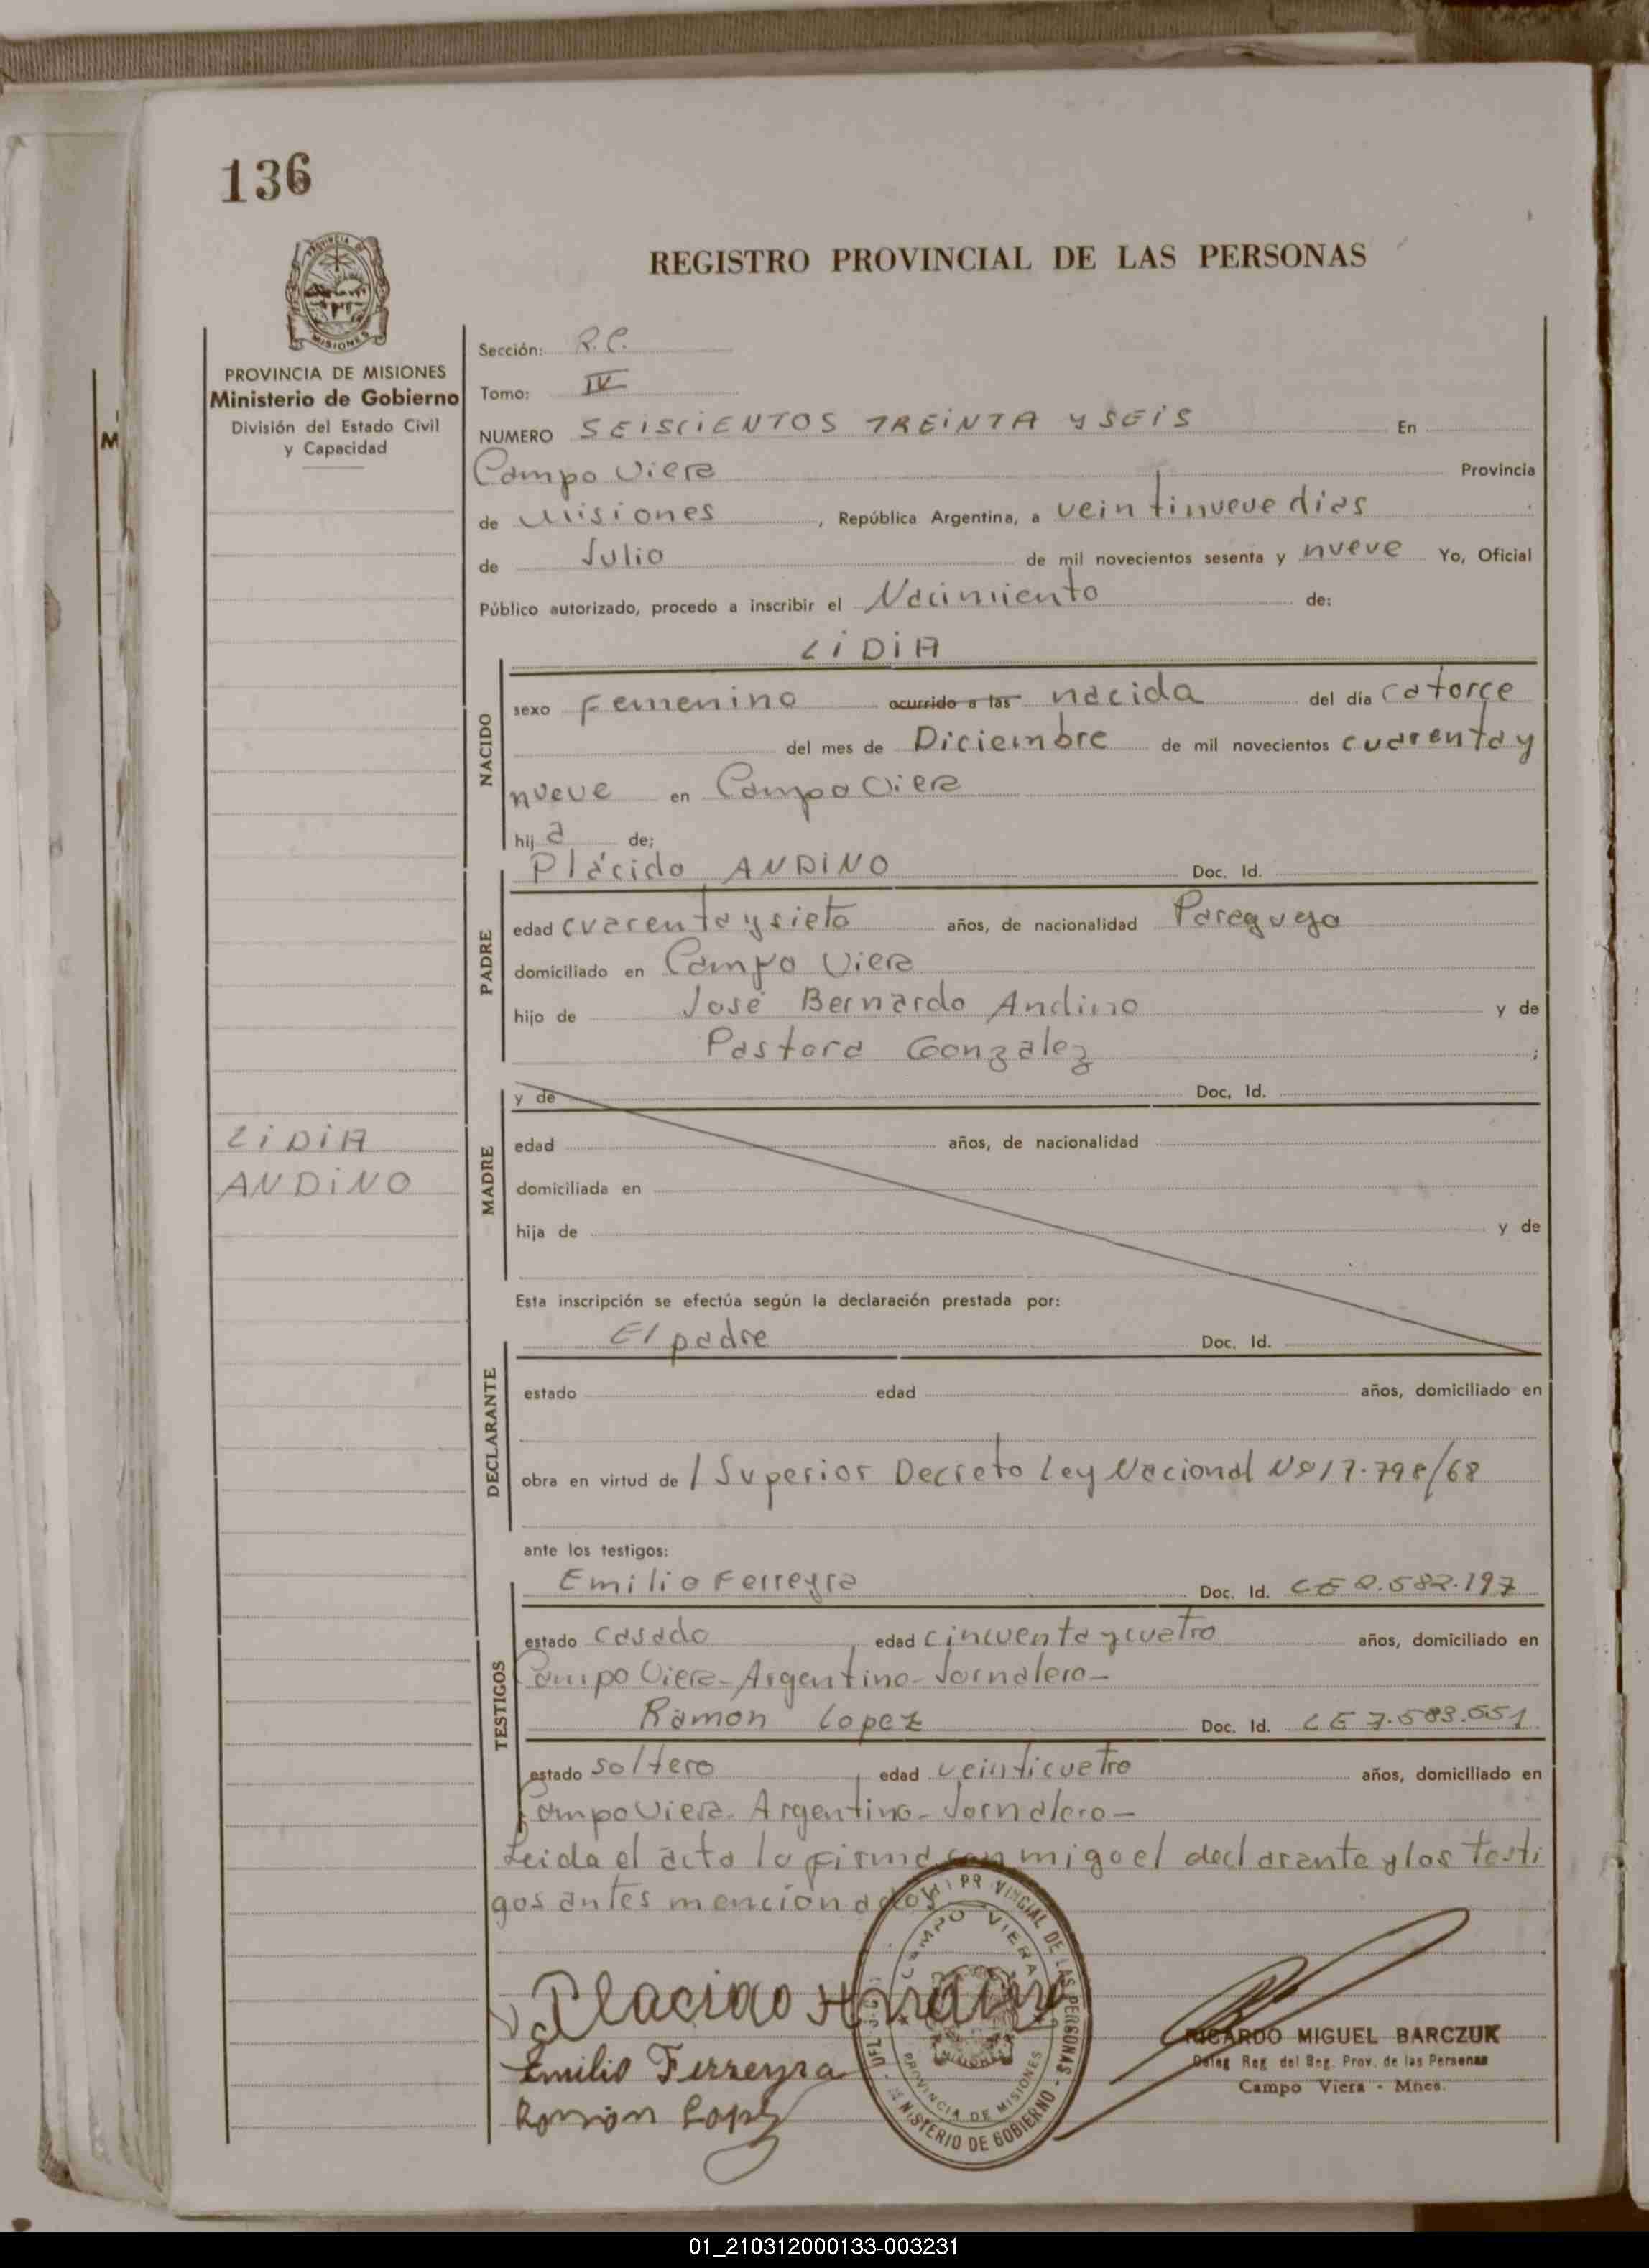 136
PROVINCIA DE
MISIONES
REGISTRO PROVINCIAL DE LAS PERSONAS
PROVINCIA DE MISIONES
Ministerio de Gobierno
División del Estado Civil
y Capacidad
M
Sección: R.C.
Tomo: IV
NUMERO SEISCIENTOS TREINTA Y SEIS En
Campo Viera Provincia
de Misiones , República Argentina, a veintinueve dias
de Julio de mil novecientos sesenta y nueve Yo, Oficial
Público autorizado, procedo a inscribir el Nacimiento de:
LIDIA
NACIDO
sexo Femenino ocurrido a las nacida del día catorce
del mes de Diciembre de mil novecientos cuarenta y
nueve en Campo Viera
hij a de;
Plácido ANDINO Doc. Id.
PADRE
edad cuarenta y siete años, de nacionalidad Paraguayo
domiciliado en Campo Viera
hijo de José Bernardo Andino y de
Pastora Gonzalez ;
y de Doc. Id.
MADRE
edad años, de nacionalidad
domiciliada en
hija de y de
LIDIA
ANDINO
Esta inscripción se efectúa según la declaración prestada por:
El padre Doc. Id.
DECLARANTE
estado edad años, domiciliado en
obra en virtud de / Superior Decreto Ley Nacional Nº 17.798/68
ante los testigos:
Emilio Ferreyra Doc. Id.
TESTIGOS
estado casado edad cincuenta y cuatro años, domiciliado en
Campo Viera - Argentino - Jornalero -
Ramon Lopez Doc. Id. CE 7.583.551
estado soltero edad veinticuatro años, domiciliado en
Campo Viera - Argentino - Jornalero -
Leida el acta la firma conmigo el declarante y los testi
gos antes mencionados
Placido Andino
Emilio Ferreyra
Ramon Lopez
PROVINCIAL DE LAS PERSONAS - MINISTERIO DE GOBIERNO
CAMPO VIERA
PROVINCIA DE MISIONES
RICARDO MIGUEL BARCZUK
Deleg Reg del Reg. Prov. de las Personas
Campo Viera - Mnes.
01_210312000133-003231